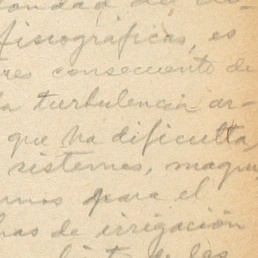 fisiográficas, es
consecuente de
la turbulencia ar-
que ha dificulta
sistemas, maqui
para el
de irrigación
de las